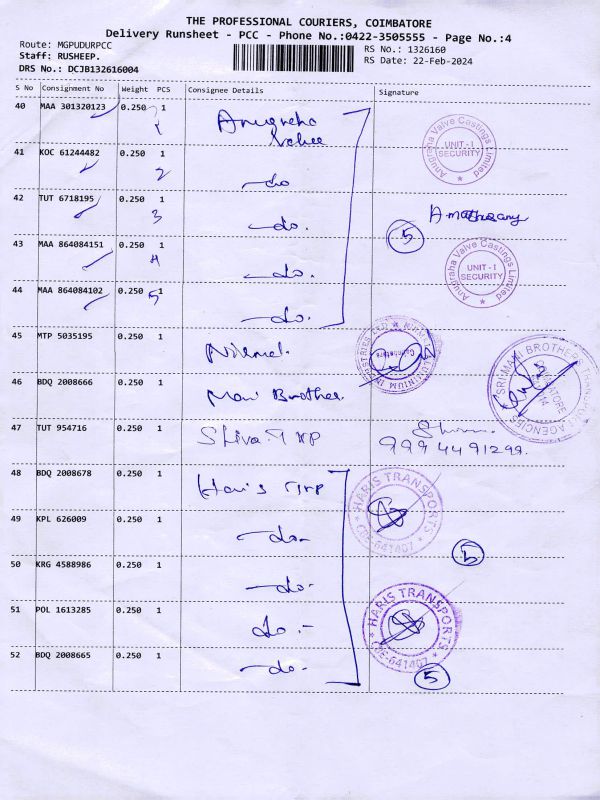 THE PROFESSIONAL COURIERS, COIMBATORE
Delivery Runsheet - PCC - Phone No.:0422-3505555 - Page No.:4
Route: MGPUDURPCC
RS No.: 1326160
Staff: RUSHEEP.
RS Date: 22-Feb-2024
DRS No.: DCJB132616004
S No Consignment No Weight PCS Consignee Details Signature
40 MAA 301320123 0.250 1 Anugraha
1 Valve
Anugraha Valve Castings Limited
UNIT-I
SECURITY
41 KOC 61244482 0.250 1
2 -do
42 TUT 6718195 0.250 1
3 -do.
5
43 MAA 864084151 0.250 1
4 -do.
Anugraha Valve Castings Limited
UNIT-I
SECURITY
44 MAA 864084102 0.250 1
5 -do.
45 MTP 5035195 0.250 1 Nirmal.
46 BDQ 2008666 0.250 1 Mani Brother.
47 TUT 954716 0.250 1 Shiva TNP
9994491299.
48 BDQ 2008678 0.250 1 Haris Trp
HARIS TRANSPORTS
CBE-641407
49 KPL 626009 0.250 1 -do-
5
50 KRG 4588986 0.250 1 -do-
51 POL 1613285 0.250 1 do.-
HARIS TRANSPORTS
CBE-641407
52 BDQ 2008665 0.250 1 -do-
5